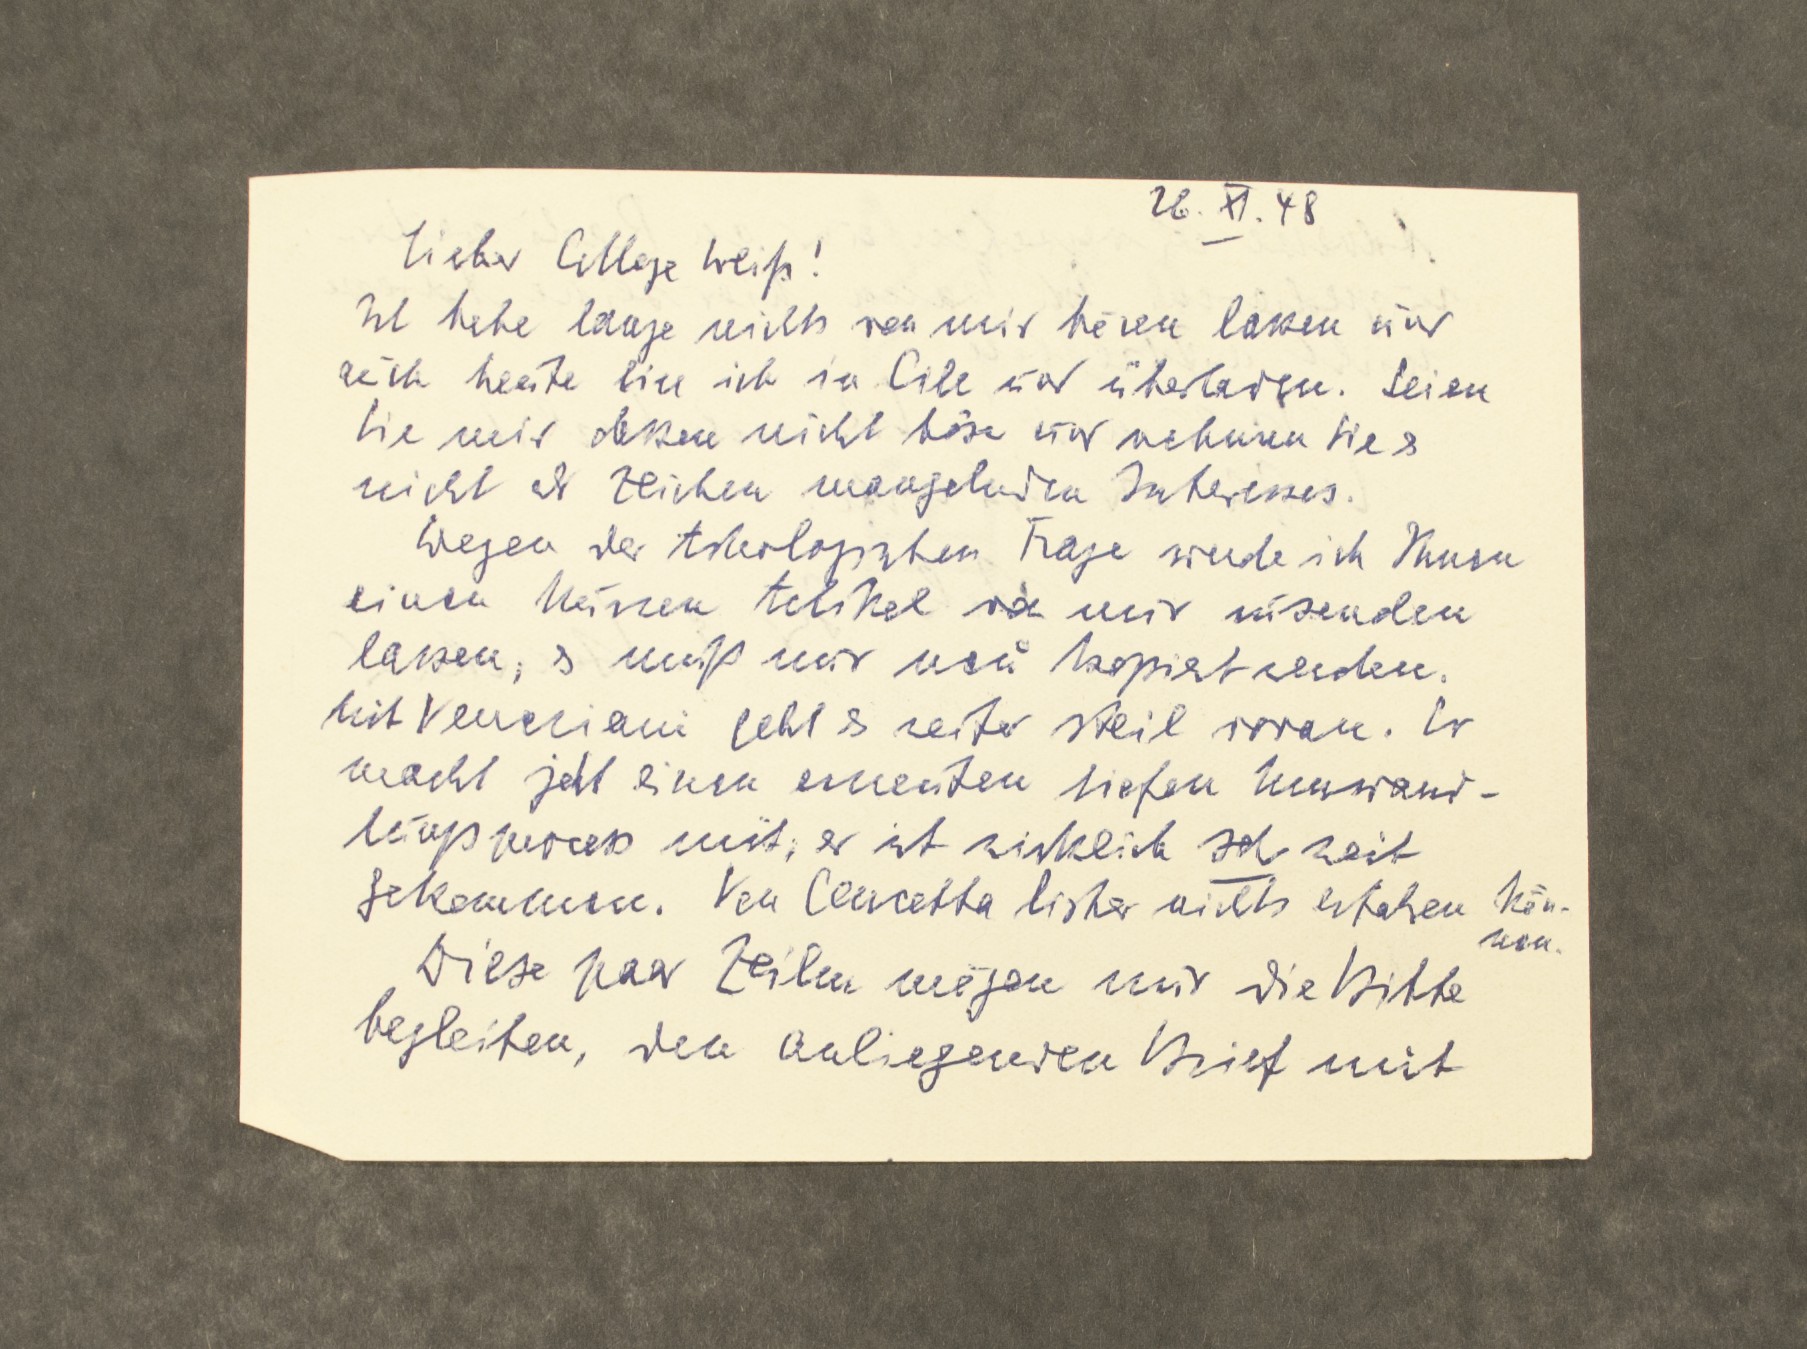 26. XI. 48
Lieber College Weiß!
Ich habe lange nichts von mir hören lassen und
auch heute bin ich in Eile und überladen. Seien
Sie mir dessen nicht böse und nehmen Sie es
nicht als Zeichen mangelnden Interesses.
Wegen der theologischen Frage werde ich Ihnen
einen kurzen Artikel von mir zusenden
lassen, es muß nur neu kopiert werden.
Mit Veneziani geht es weiter steil voran. Er
macht jetzt einen erneuten tiefen Umwand-
lungsprocess mit; er ist wirklich sehr weit
gekommen. Von Concetta bisher nichts erfahren kön-
nen.
Diese paar Zeilen mögen nur die Bitte
begleiten, den anliegenden Brief mit